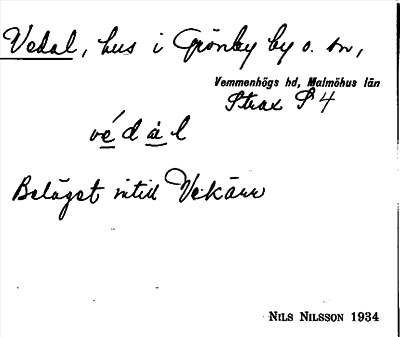 Vedal, hus i Grönby by o. sn,
Vemmenhögs hd, Malmöhus län
Strax S 4
védàl
Beläget intill Vekärr
NILS NILSSON 1934